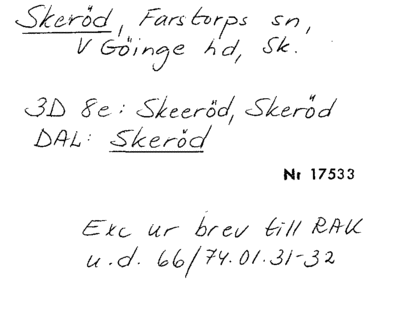 Skeröd, Farstorps sn,
V Göinge hd, Sk.
3D 8e: Skeeröd, Skeröd
DAL: Skeröd
Nr 17533
Exc ur brev till RAK
u.d. 66/74.01.31-32